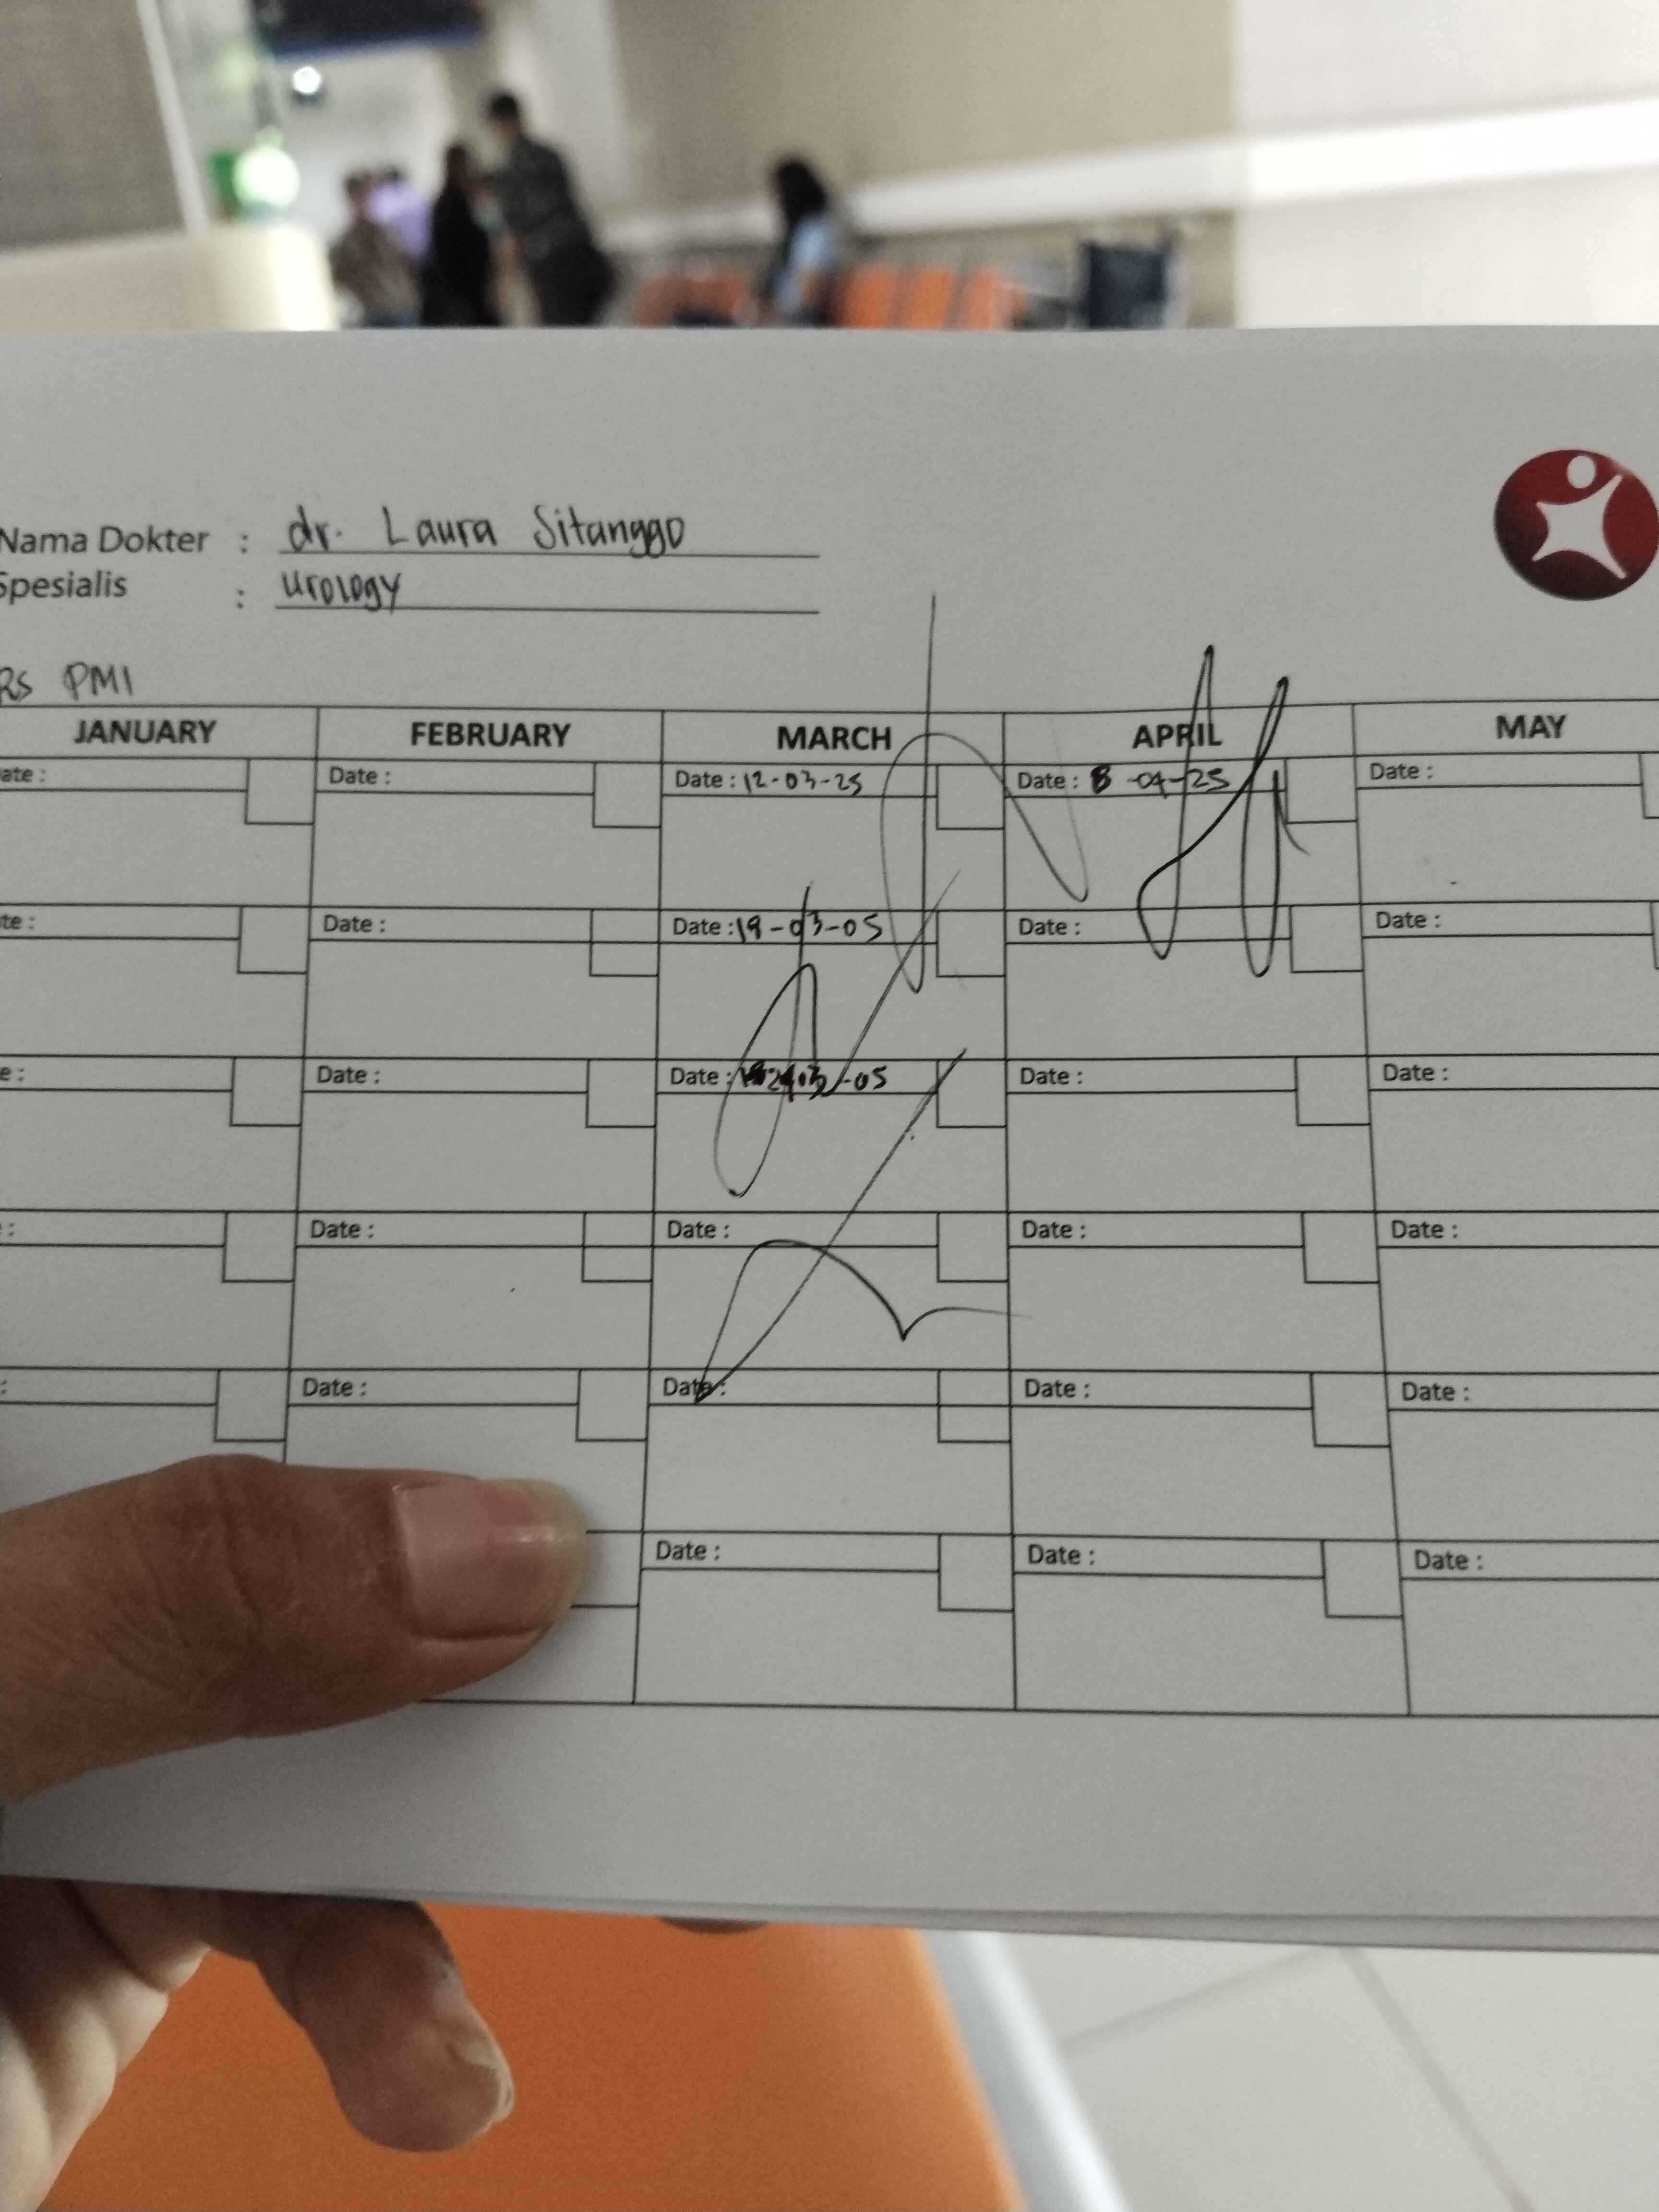 Nama Dokter : dr. Laura Sitanggo
Spesialis : Urology
RS PMI
JANUARY FEBRUARY MARCH APRIL MAY
ate : Date : Date : 12-03-25 Date : 8 -04-25 Date :
te : Date : Date : 19-03-05 Date : Date :
e : Date : Date : -05 Date : Date :
: Date : Date : Date : Date :
: Date : Date : Date : Date :
Date : Date : Date :